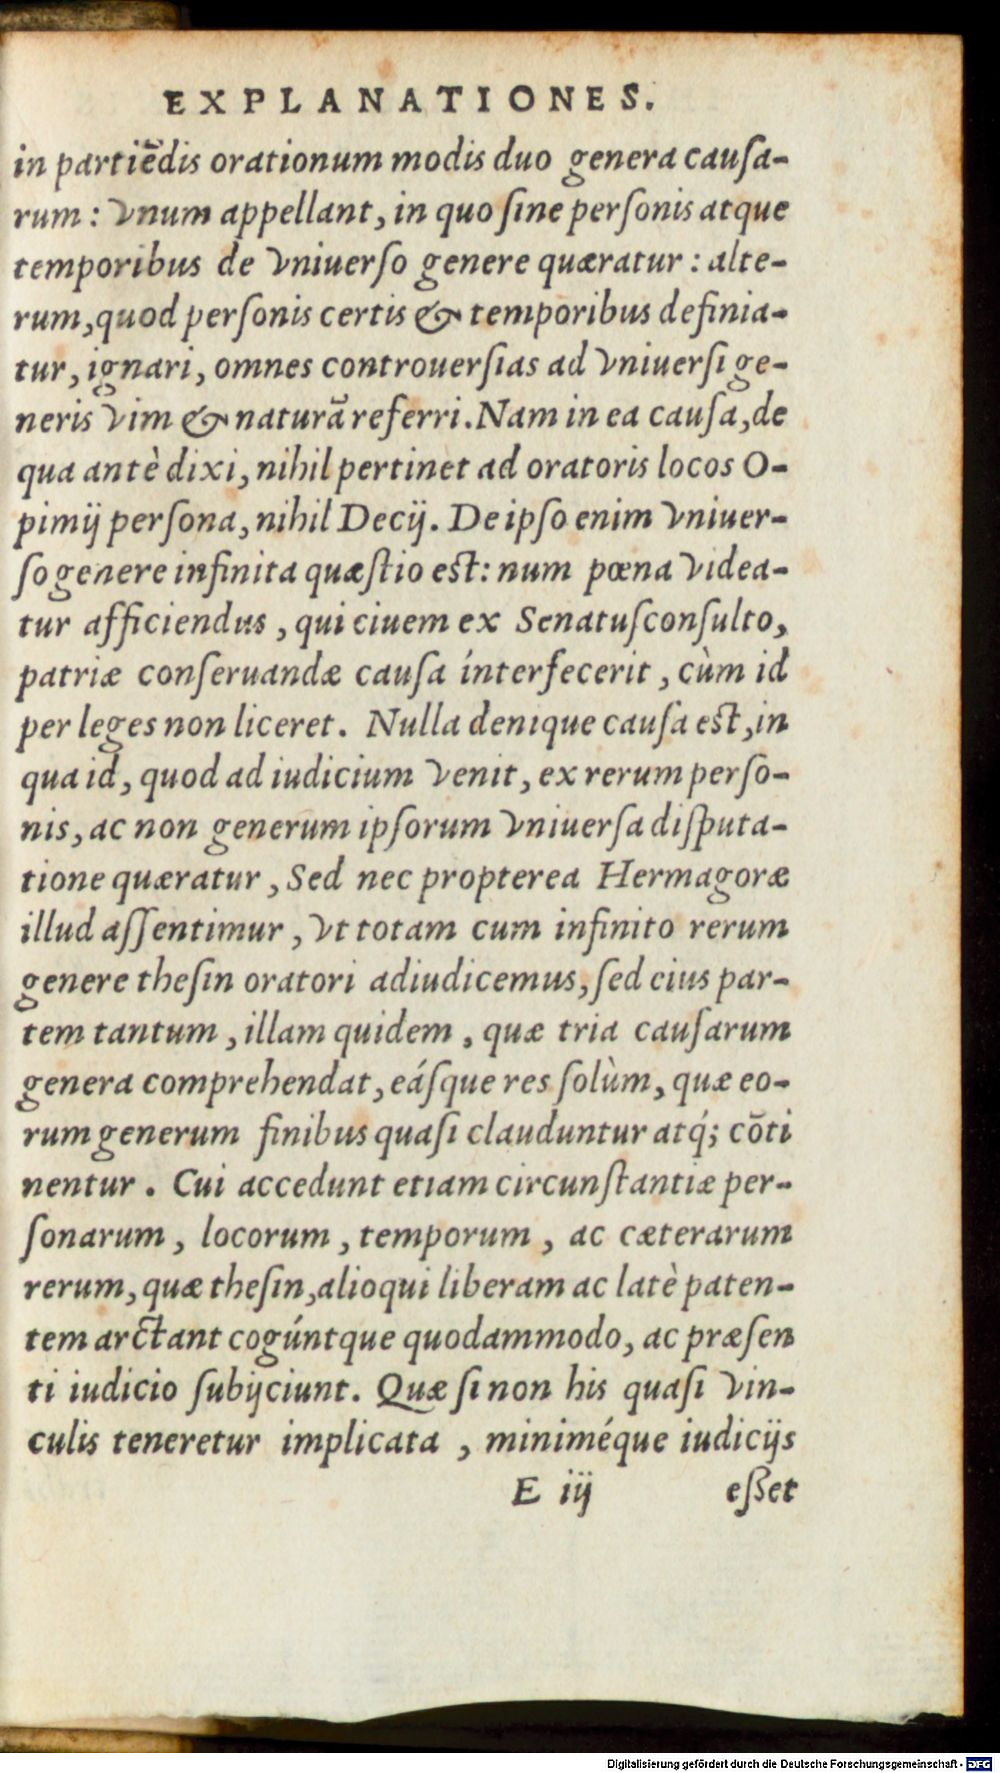 EXPLANATIONES.
in partiẽdis orationum modis duo genera cauſa-
rum: vnum appellant, in quo ſine perſonis atque
temporibus de vniuerſo genere quæratur: alte-
rum, quod perſonis certis & temporibus definia-
tur, ignari, omnes controuerſias ad vniuerſi ge-
neris vim & naturã referri. Nam in ea cauſa, de
qua antè dixi, nihil pertinet ad oratoris locos O-
pimij perſona, nihil Decij. De ipſo enim vniuer-
ſo genere infinita quæſtio eſt: num pœna videa-
tur afficiendus, qui ciuem ex Senatuſconſulto,
patriæ conſeruandæ cauſa ínterfecerit, cùm id
per leges non liceret. Nulla denique cauſa eſt, in
qua id, quod ad iudicium venit, ex rerum perſo-
nis, ac non generum ipſorum vniuerſa diſputa-
tione quæratur, Sed nec propterea Hermagoræ
illud aſſentimur, vt totam cum infinito rerum
genere theſin oratori adiudicemus, ſed eius par-
tem tantum, illam quidem, quæ tria cauſarum
genera comprehendat, eáſque res ſolùm, quæ eo-
rum generum finibus quaſi clauduntur atq́; cõti
nentur. Cui accedunt etiam circunſtantiæ per-
ſonarum, locorum, temporum, ac cæterarum
rerum, quæ theſin, alioqui liberam ac latè paten-
tem arctant cogúntque quodammodo, ac præſen
ti iudicio ſubijciunt. Quæ ſi non his quaſi vin-
culis teneretur implicata, miniméque iudicijs
E iij eßet
Digitalisierung gefördert durch die Deutsche Forschungsgemeinschaft - DFG